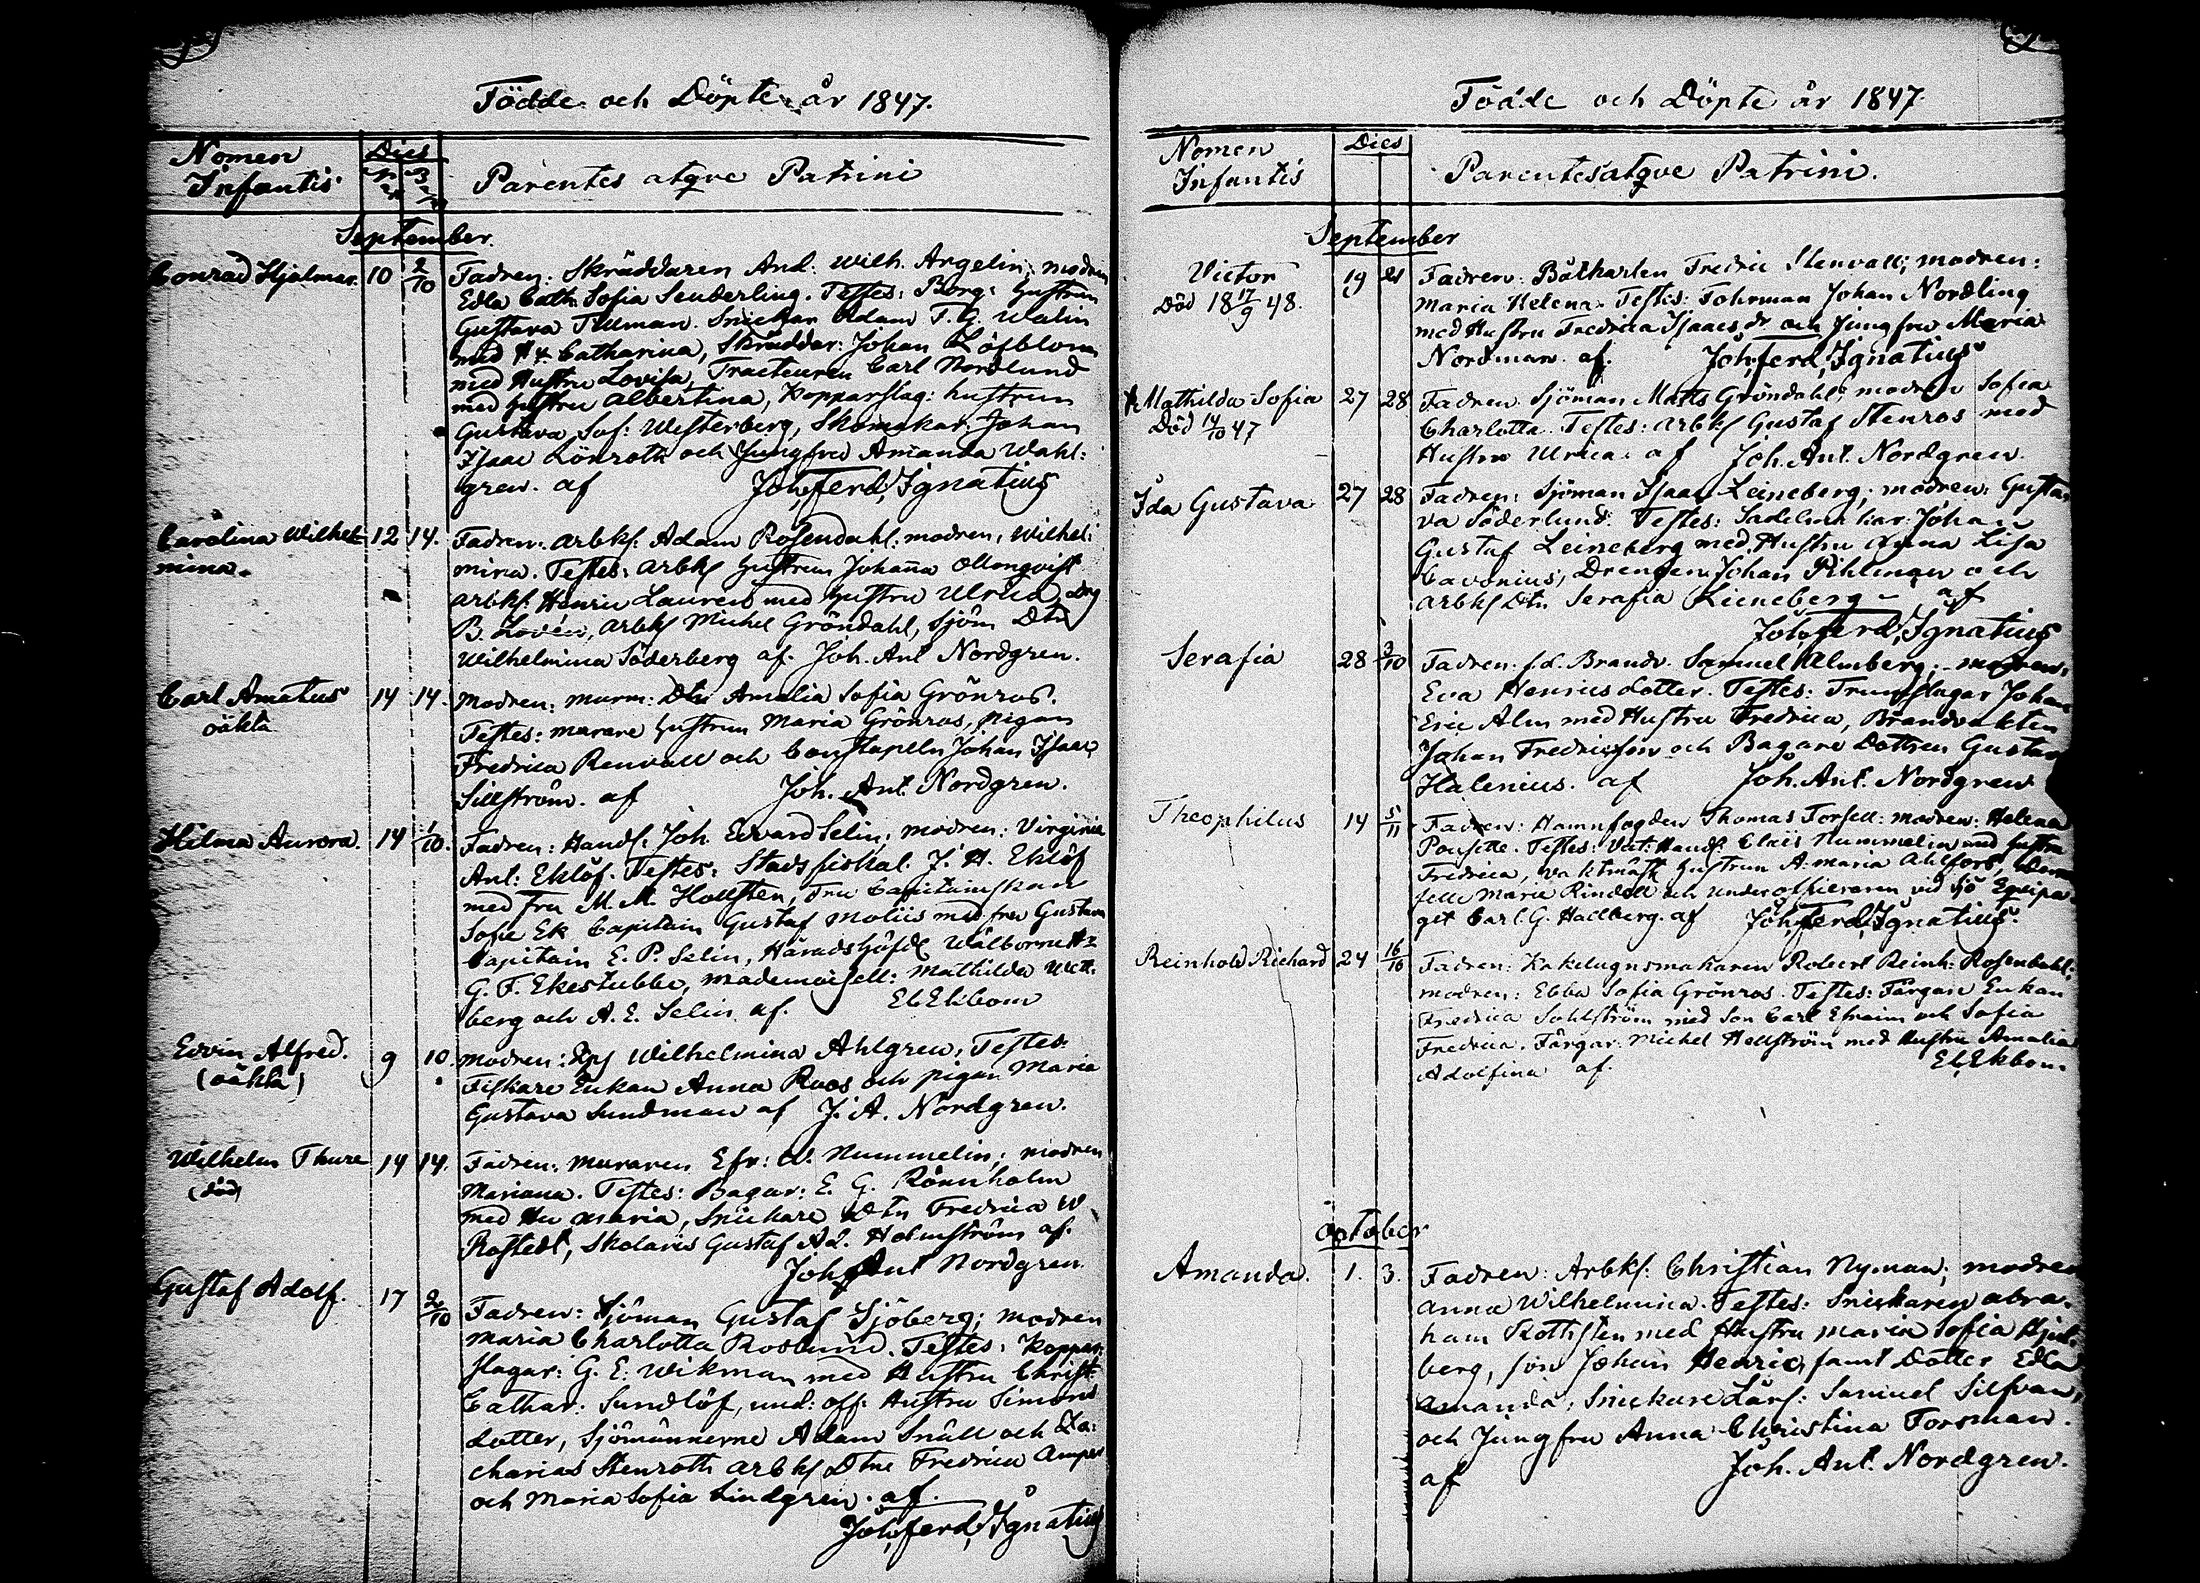 Födde och Döpte år 1847.
Nomen Infantis
Dies
Parentes atqve Patrini
September.
Conrad Hjalmar. 10 2/10 Fadren: Skräddaren And: Wilh. Argelin; modren
Edla Cath. Sofia Senderling. Testes: Borg: hustrun
Gustava Tillman. Snickar Adam F. G. Walin
med H. Catharina, Skräddar: Johan Löfblom
med Hustru Lovisa, Tracteuren Carl Nordlund
med hustru Albertina, Kopparslag: hustrun
Gustava Sof: Westerberg, Skomakar: Johan
Isaac Lönroth och Jungfru Amanda Wahl:
gren. af Joh, ferd, Ignatius
Carolina Wilhel- 12 14. Fadren: Arbks. Adam Rosendahl: modren, Wilhel:
mina. mina. Testes: Arbks hustrun Johanna Almqvist
Arbks. Henric Lauren med hustru Ulrica, Drg
B. Lovén, Arbks Michel Gröndahl, Sjöm Dtr
Wilhelmina Söderberg af. Joh. Ant Nordgren.
Carl Amatus 14 14. Modren: murm: Dtr Amalia Sofia Grönros.
oäkta Testes: murare hustrun Maria Grönros, pigan
Fredrica Renvall och Constapeln Johan Isaac
Sillström. af Joh. Ant. Nordgren.
Hilma Aurora. 14 1/10. Fadren: Handl. Joh. Edvard Selin; modren: Virginie
Ant: Eklöf. Testes: Stadsfiskal. J. H. Eklöf
med fru M. M. Hollsten, Fru Capitainskan
Sofie Ek Capitain Gustaf Moliis med fru Gustava
Capitain E. P. Selin, Häradshöfd Wälborne Hr
G. F. Ekestubbe, mademoisell: Mathilda Wett-
berg och A. E. Selin. af. El Ekbom
Edvin Alfred. 9 10. modren: Pig Wilhelmina Ahlgren, Testes
(oäkta) Fiskare Enkan Anna Roos och pigan Maria
Gustava Sundman af J. A. Nordgren.
Wilhelm Thure 14 14. Fadren: muraren Efr: W. Nummelin; modren
(död) Mariana. Testes: Bagar: E. G. Rönnholm
med Hu Maria, Snickare Dtn Fredrica W
Rostedt, Skolaris Gustaf Ad. Holmström af.
Joh Ant Nordgren.
Gustaf Adolf. 17 2/10 Fadren: Sjöman Gustaf Sjöberg; modren
Maria Charlotta Roslund. Testes: Koppar:
slagar: G. E. Wikman med Hustru Christ.
Cathar: Sundlöf, und: off: Hustru Simons
dotter, Sjömännerne Adam Snäll och Za:
charias Stenroth Arbks Dtne Fredrica Amper
och Maria Sofia Lindgren. af.
Joh, ferd, Ignatius
Födde och Döpte år 1847.
Nomen Infantis
Dies
Parentes atqve Patrini.
September
Victor 19 21 Fadren: Båtkarlen Fredric Stenvall; modren:
Död 18 17/9 48. Maria Helena. Testes: Fohrman Johan Nordling
med Hustru Fredrica Isaacs dr och Jungfru Maria
Nordman. af. Joh, ferd, Ignatius
Mathilda Sofia 27 28 Fadren: Sjöman Matts Gröndahl; modren Sofia
Död 14/10 47 Charlotta. Testes: Arbks Gustaf Stenros med
Hustru Ulrica. af Joh. Ant. Nordgren.
Ida Gustava 27 28 Fadren: Sjöman Isaac Leineberg; modren: Gusta
va Söderlund. Testes: Sadelmakar: Johan
Gustaf Leineberg med Hustru Anna Lisa
Cavonius, Drengen Johan Pihlman och
Arbks Dtr Serafia Lieneberg - af
Joh, ferd, Ignatius
Serafia 28 3/10 Fadren: f.d. Brandv. Samuel Almberg; modren:
Eva Henrics dotter. Testes: Trumslagar Johan
Eric Alm med Hustru Fredrica, Brandvakten
Johan Fredricsson och Bagare Dottren Gustava
Halenius. af Joh. Ant. Nordgren
Theophilus 14 5/11 Fadren: Hamnfogden Thomas Forsell: modren: Helena
Pousette. Testes: Vict: Handl: Elias Nummelin med hustru
Fredrica, vaktmäst hustrun A. Maria Ahlfors, Dem
selle Maria Rindell och Underofficeraren vid Sjö Eqvipa-
get Carl G. Hallberg. af Joh, Ferd, Ignatius.
Reinhold Richard 24 16/10 Fadren: Kakelugnsmakaren Robert Reinh: Rosendahl;
modren: Ebba Sofia Grönros. Testes: Färgare Enkan
Fredrica Sohlström med Son Carl Efraim och Sofia
Fredrica. Färgar: Michel Hellström med Hustru Amalia
Adolfina af. El, Ekbom
October
Amanda. 1. 3. Fadren: Arbks: Christian Nyman; modren
Anna Wilhelmina. Testes: Snickaren Abra-
ham Rothsten med Hustru Maria Sofia Hjul-
berg, son Johan Henric, samt Dotter Edla
Amanda, Snickare Lärl: Samuel Silfvan,
och Jungfru Anna Christina Forsman.
af Joh. Ant. Nordgren.